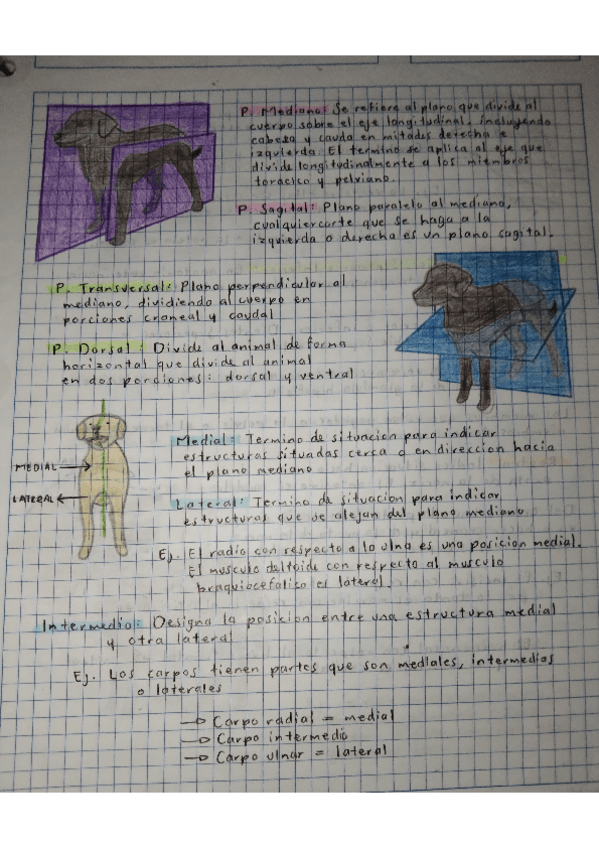 P. Mediano: Se refiere al plano que divide al
cuerpo sobre el eje longitudinal, incluyendo
cabeza y cauda en mitades derecha e
izquierda. El termino se aplica al eje que
divide longitudinalmente a los miembros
toracico y pelviano.
P. Sagital: Plano paralelo al mediano,
cualquier corte que se haga a la
izquierda o derecha es un plano sagital.
P. Transversal: Plano perpendicular al
mediano, dividiendo al cuerpo en
porciones craneal y caudal
P. Dorsal: Divide al animal de forma
horizontal que divide al animal
en dos porciones: dorsal y ventral
Medial: Termino de situacion para indicar
estructuras situadas cerca o en direccion hacia
el plano mediano
MEDIAL
LATERAL
Lateral: Termino de situacion para indicar
estructuras que se alejan del plano mediano
Ej. El radio con respecto a la ulna es una posicion medial.
El musculo deltoide con respecto al musculo
braquiocefalico es lateral.
Intermedio: Designa la posicion entre una estructura medial
y otra lateral
Ej. Los carpos tienen partes que son mediales, intermedias
o laterales
→ Carpo radial = medial
→ Carpo intermedio
→ Carpo ulnar = lateral